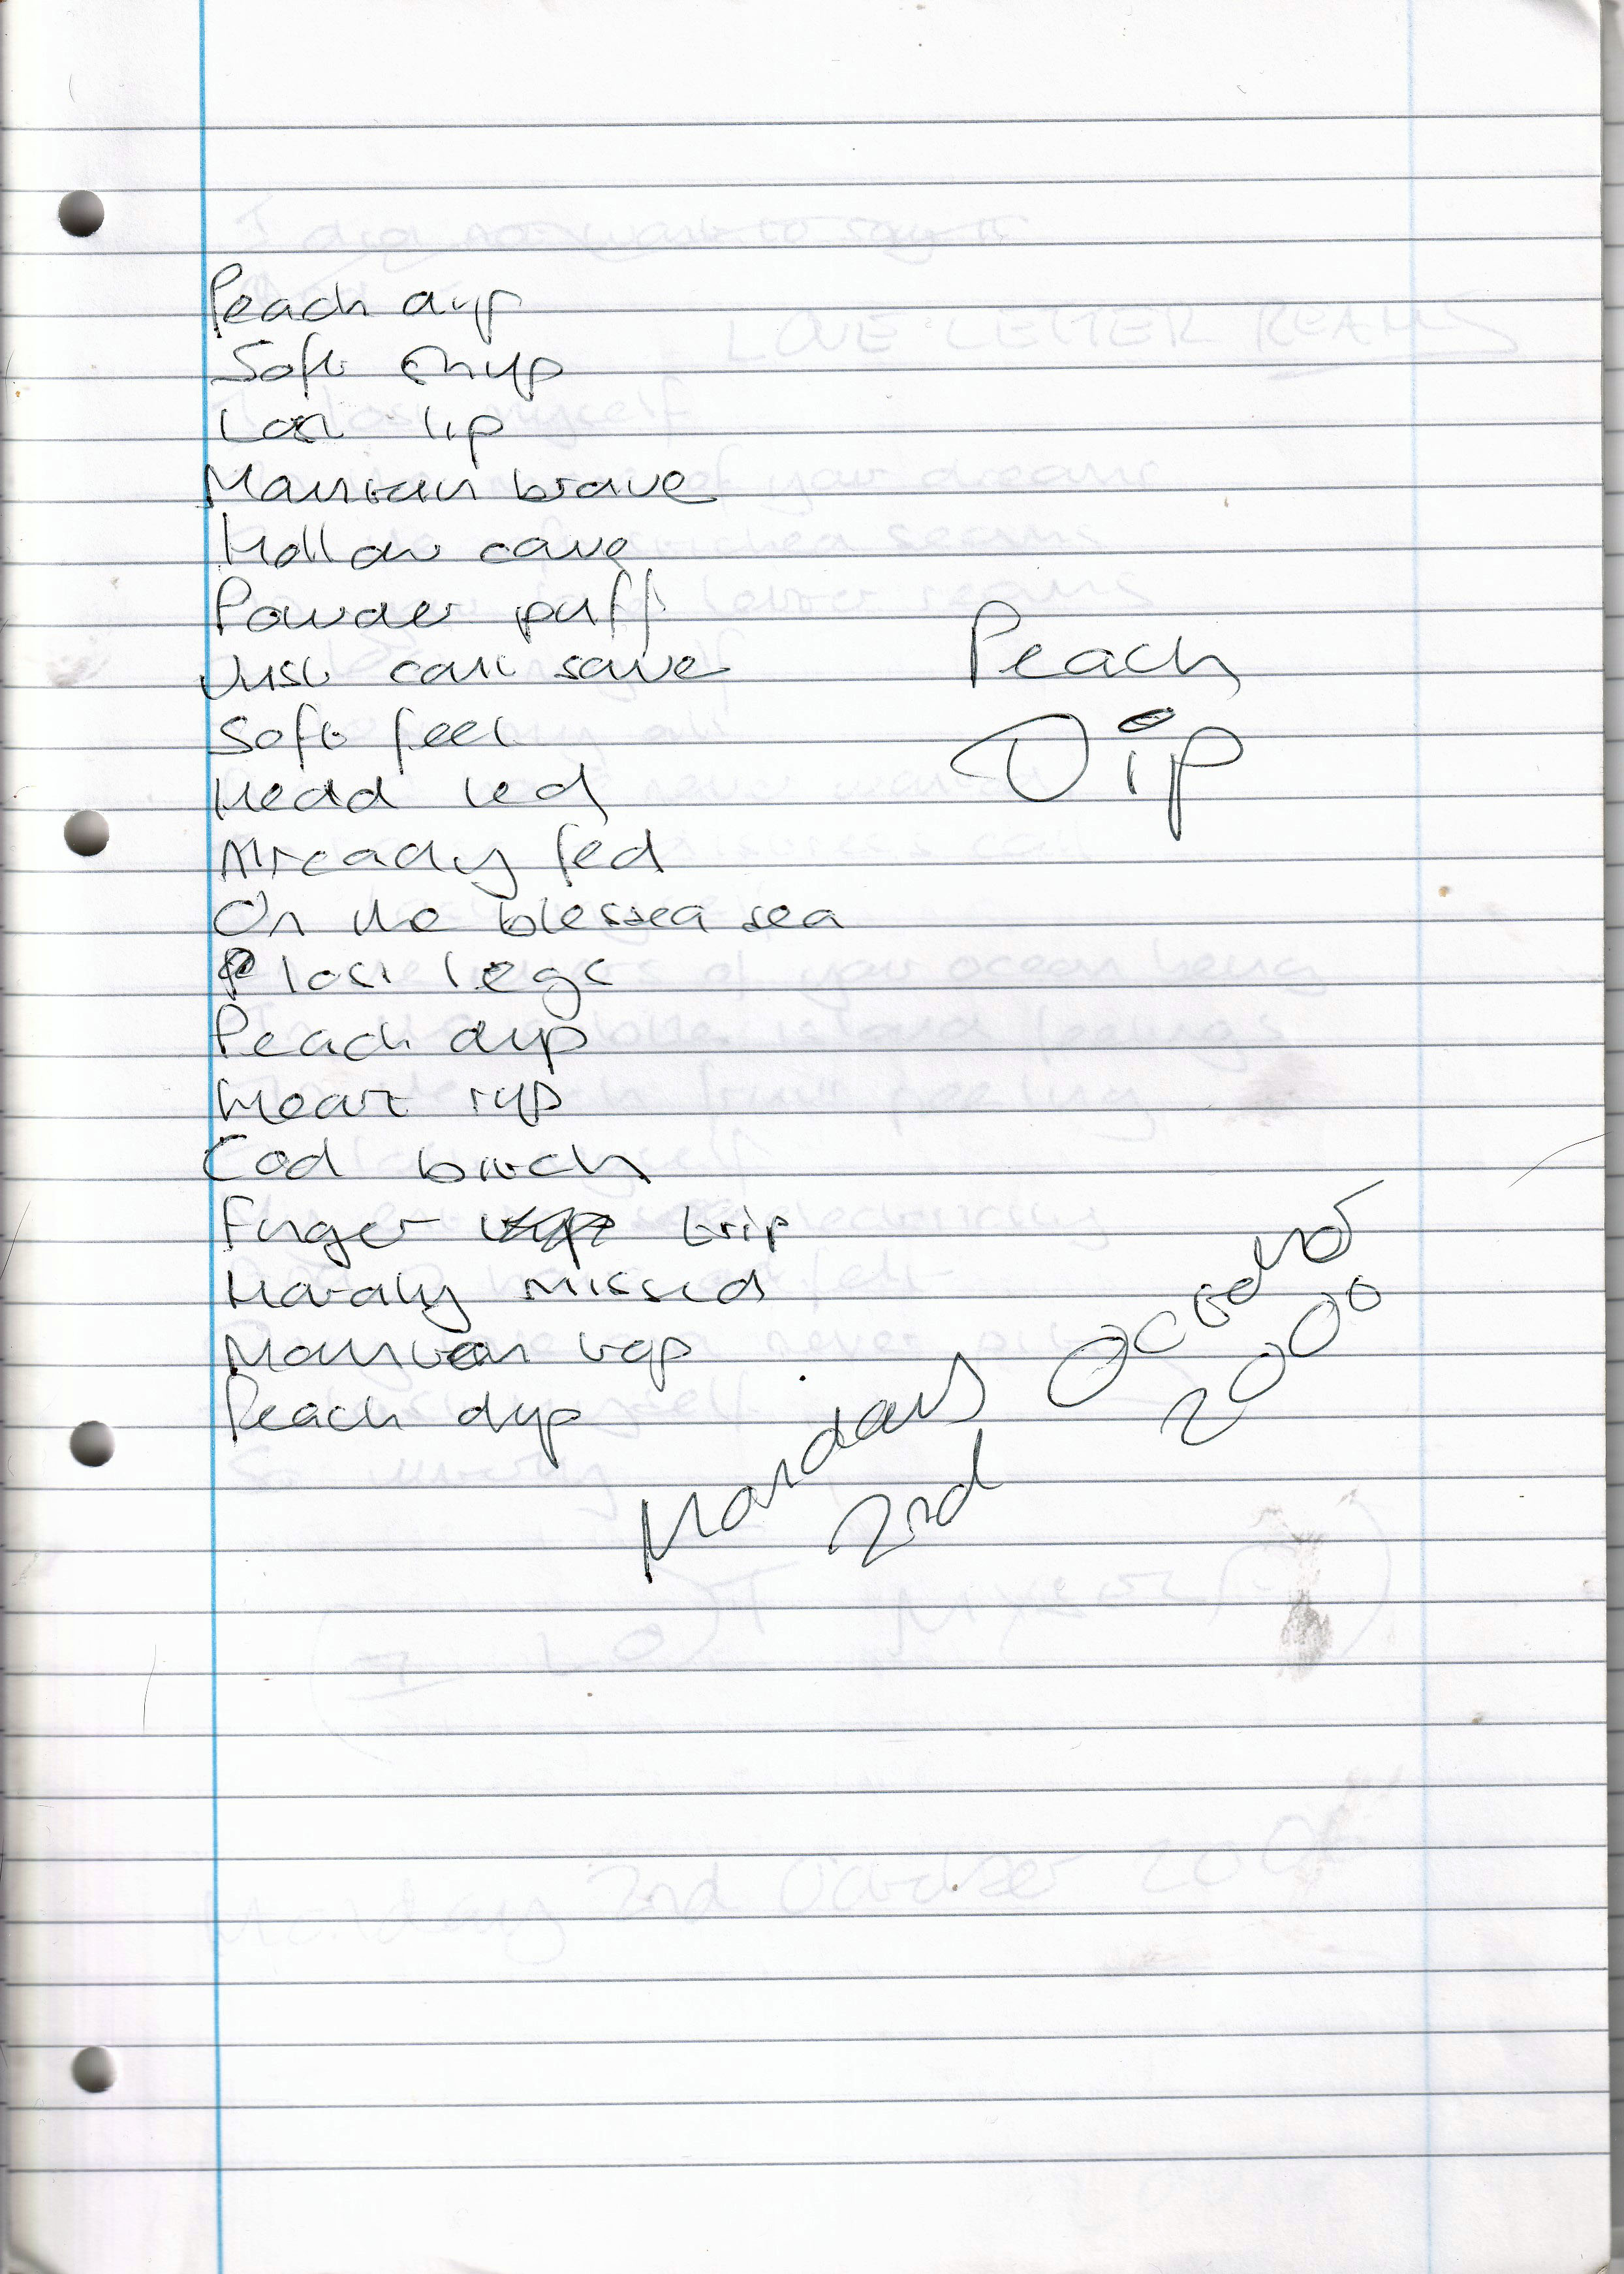 Peach dip
Soft ship
Lost lip
Mountain brave
Hollow cave
Powder puff
Just can't save
Soft feel
Head led
Already fed
On the blessed sea
lost legs
Peach dip
Heart rip
Cod
Finger trip
Hardly missed
Mountain top
Peach dip
Peach
Dip
Monday 2nd October 2000